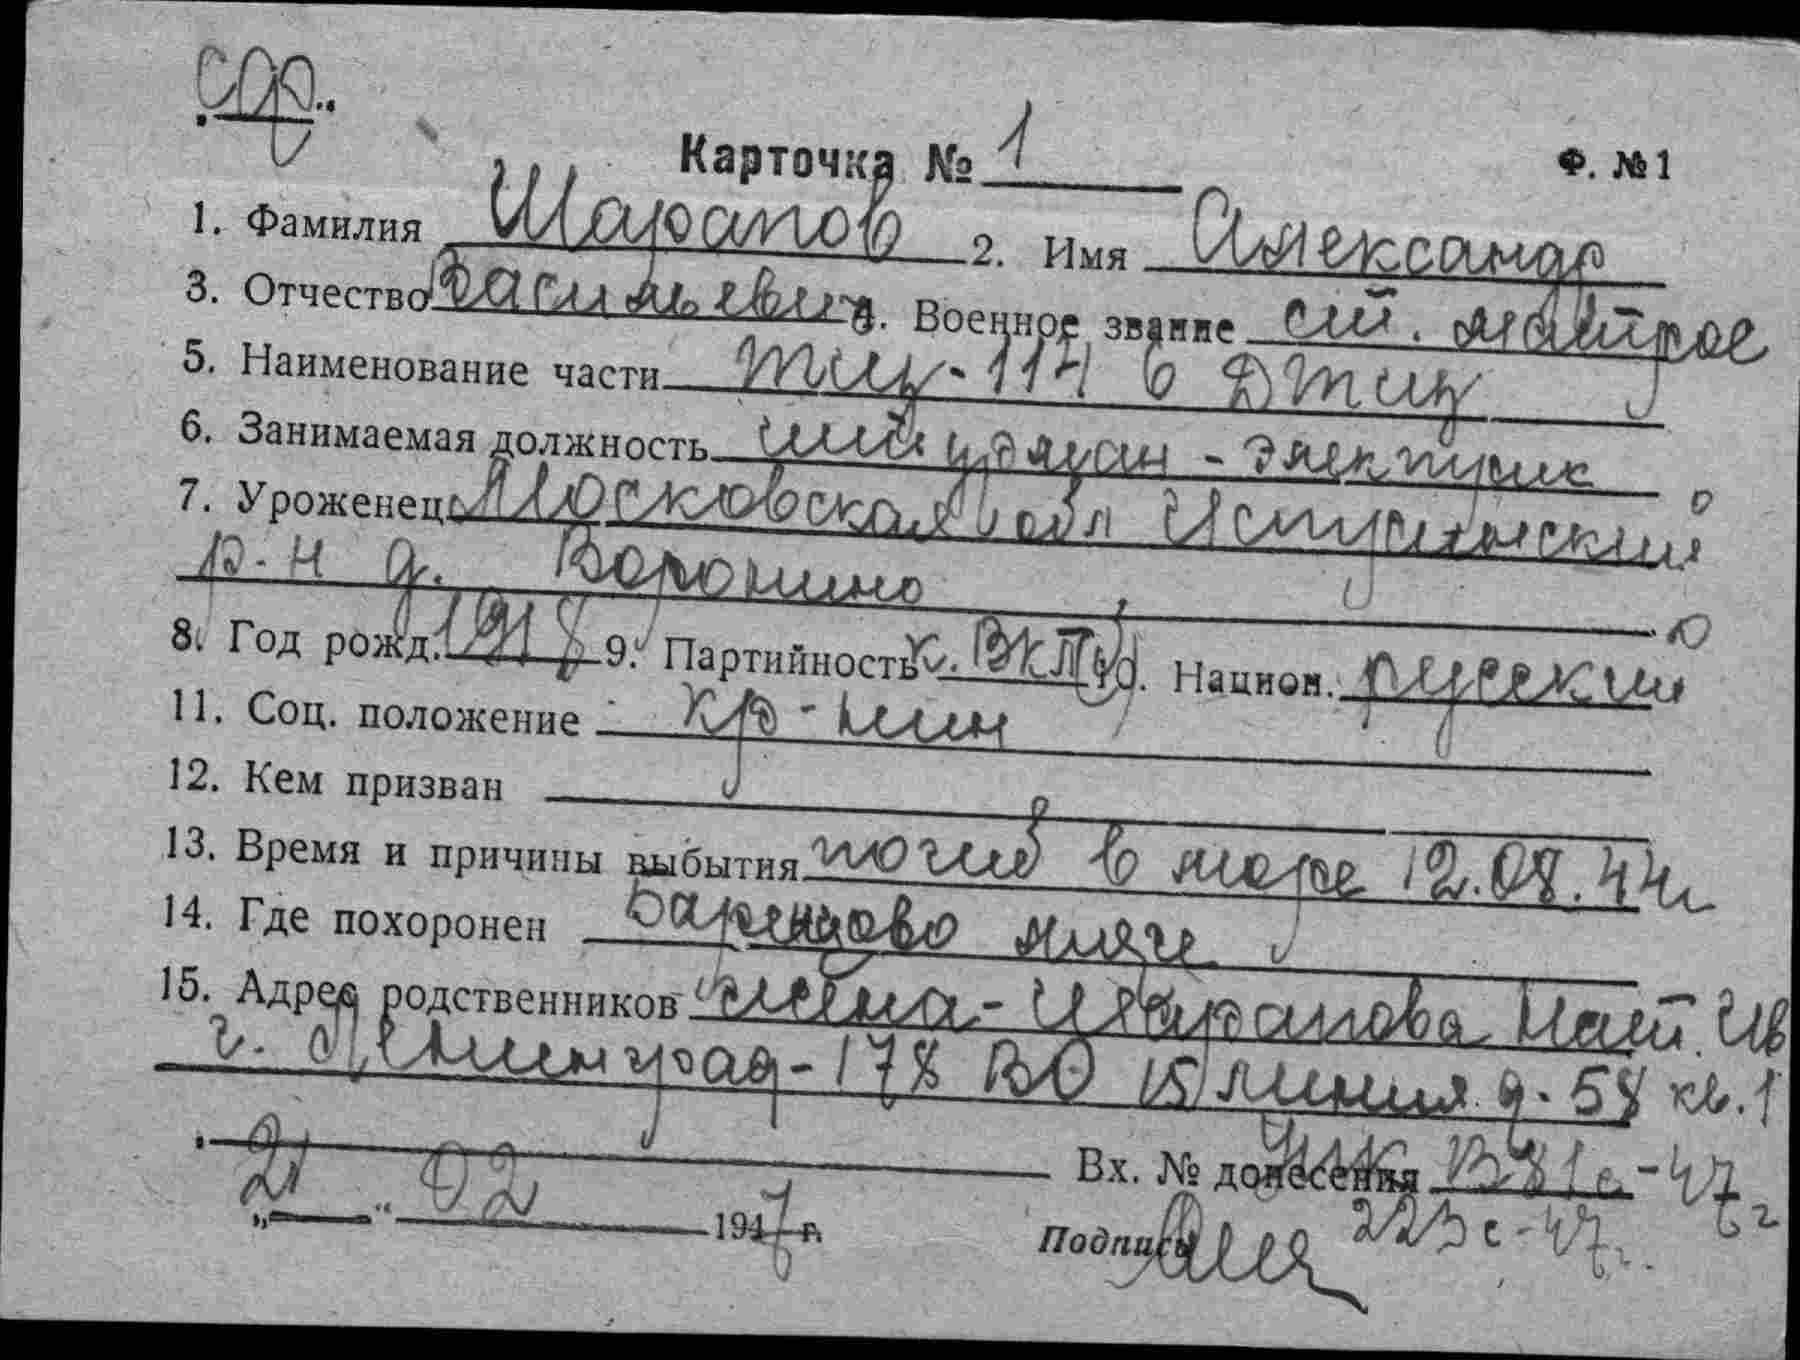 Карточка № 1
Ф. № 1
1. Фамилия Шарапов 2. Имя Александр
3. Отчество Васильевич 4. Военное звание ст. матрос
5. Наименование части ТЩ-114 6 ДТЩ
6. Занимаемая должность штурман-электрик
7. Уроженец Московская обл Истринский
р-н д. Воронино
8. Год рожд. 1918 9. Партийность к. ВКП(б) 10. Национ. русский
11. Соц. положение кр-нин
12. Кем призван
13. Время и причины выбытия погиб в море 12.08.44г
14. Где похоронен Баренцово море
15. Адрес родственников жена - Шарапова Нат. Ив
г. Ленинград-178 ВО 15 линия д. 58 кв. 1
Вх. № донесения В81с-47г
„21“ 02 1947 г. Подпись 223с-47г.